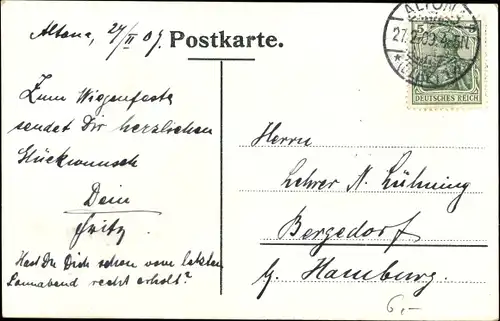 Altona, 27/II 09.
Postkarte.
ALTONA
27.2.09.4-5N.
5 5
DEUTSCHES REICH
Zum Wiegenfeste
sendet Dir herzlichen
Glückwunsch
Dein
Fritz
Hast Du Dich schon vom letzten
Sonnabend recht erholt?
Herrn
Lehrer N. Lühning
Bergedorf
b. Hamburg.
6,-